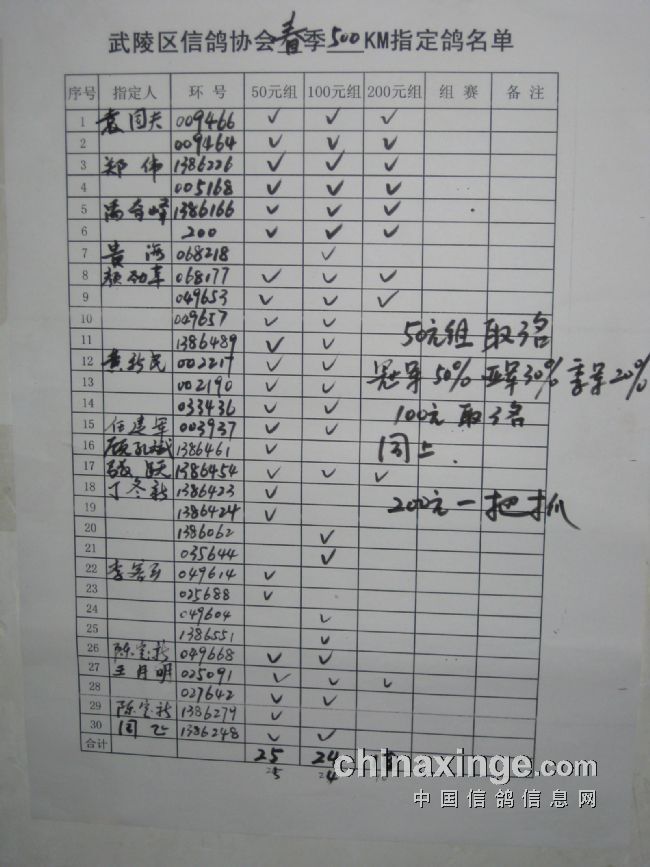 武陵区信鸽协会春季500KM指定鸽名单
序号 指定人 环号 50元组 100元组 200元组 组赛 备注
1 袁国夫 009466 ✓ ✓ ✓
2 009464 ✓ ✓ ✓
3 郑伟 1386226 ✓ ✓ ✓
4 005168 ✓ ✓ ✓
5 1386166 ✓ ✓ ✓
6 200 ✓ ✓ ✓
7 贵海 068218 ✓
8 068177 ✓ ✓ ✓
9 049653 ✓ ✓ ✓
10 049657 ✓ ✓
11 1386489 ✓ ✓
12 黄新民 002217 ✓ ✓
13 002190 ✓ ✓
14 033436 ✓ ✓
15 任建军 003937 ✓ ✓
16 1386461 ✓
17 1386454 ✓ ✓ ✓
18 丁冬新 1386423 ✓
19 1386424 ✓
20 1386062 ✓
21 035644 ✓
22 049614 ✓
23 025688 ✓
24 049604 ✓
25 1386551 ✓
26 陈宝新 049668 ✓ ✓
27 王月明 025091 ✓ ✓ ✓
28 027642 ✓ ✓
29 陈宝新 1386279 ✓
30 周飞 1386248 ✓ ✓
合计 25 24
25 24
50元组 取3名
冠军50% 亚军30% 季军20%
100元 取3名
同上.
200元一把抓
chinaxinge.com
中国信鸽信息网